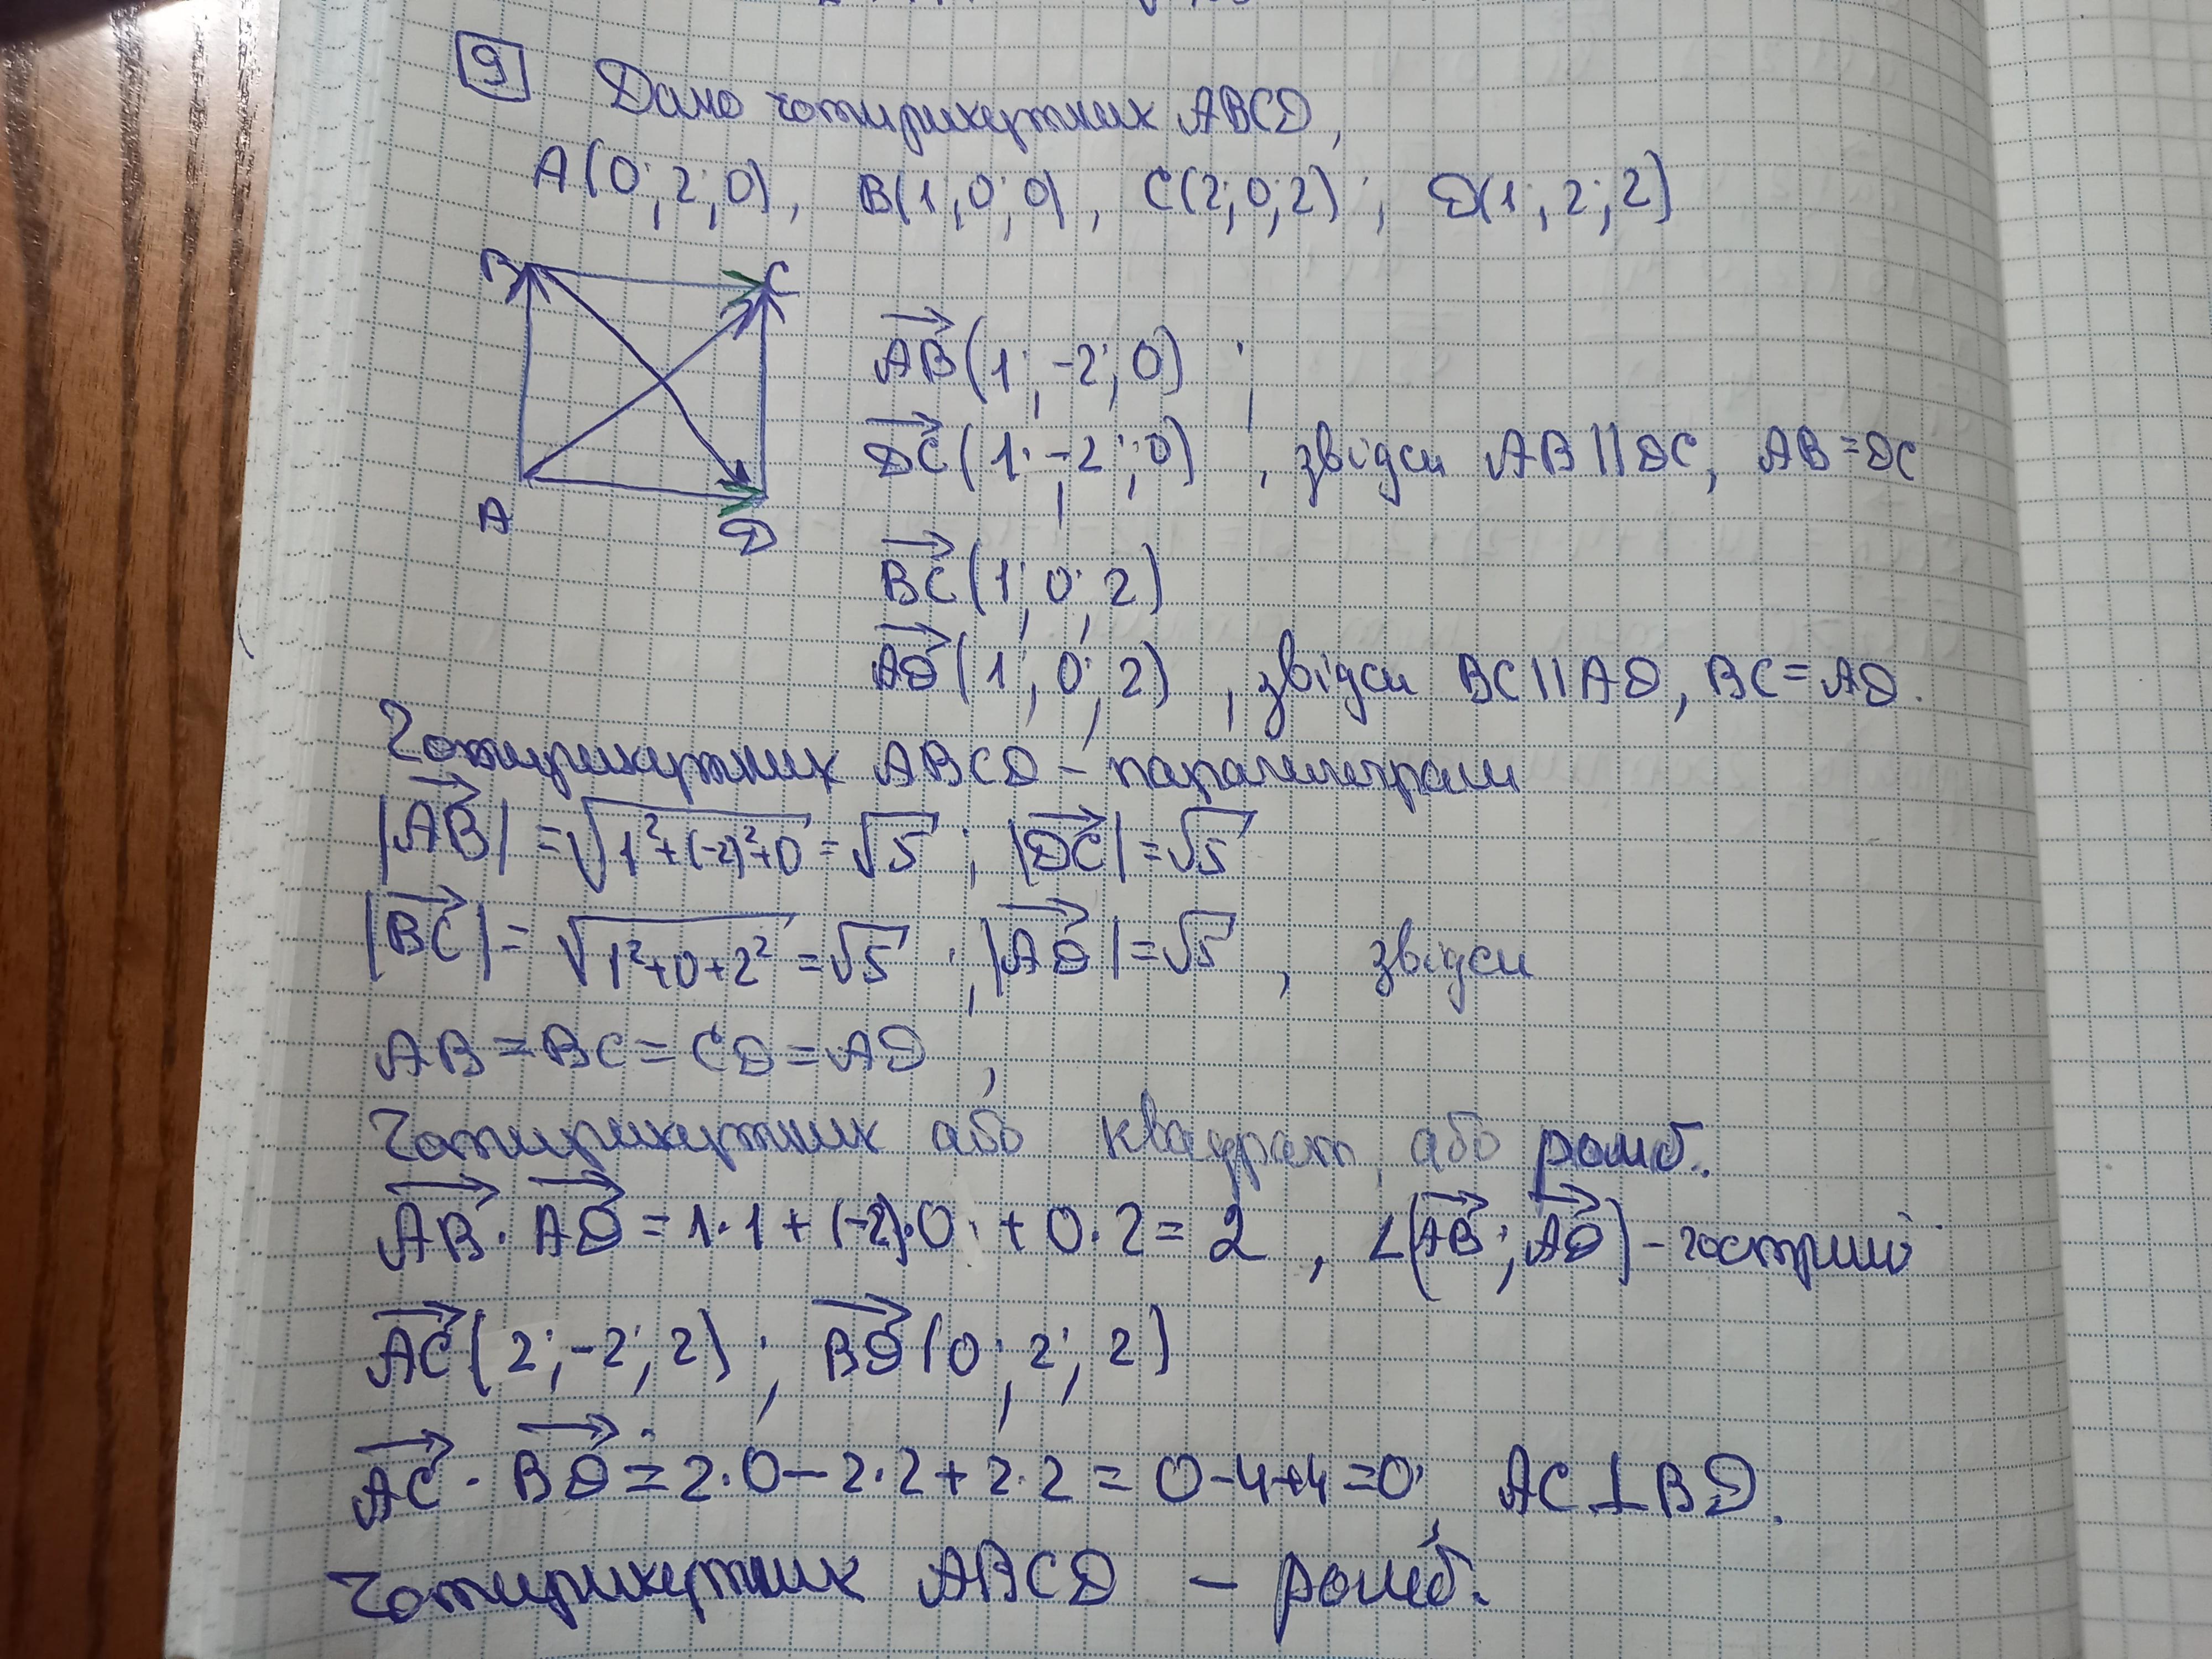 9 Дано чотирикутник ABCD,
A(0; 2; 0), B(1; 0; 0), C(2; 0; 2); D(1; 2; 2)
B C
A D
AB(1; -2; 0);
DC(1; -2; 0), звідси AB || DC, AB = DC
BC(1; 0; 2)
AD(1; 0; 2), звідси BC || AD, BC = AD.
Чотирикутник ABCD – паралелеграм
|AB| = √1²+(-2)²+0 = √5; |DC| = √5
|BC| = √1²+0+2² = √5; |AD| = √5, звідси
AB = BC = CD = AD,
Чотирикутник або квадрат, або ромб.
AB · AD = 1·1 + (-2)·0 + 0·2 = 2, ∠(AB; AD) – гострий
AC(2; -2; 2); BD(0; 2; 2)
AC · BD = 2·0 – 2·2 + 2·2 = 0 - 4 + 4 = 0; AC ⊥ BD.
Чотирикутник ABCD – ромб.